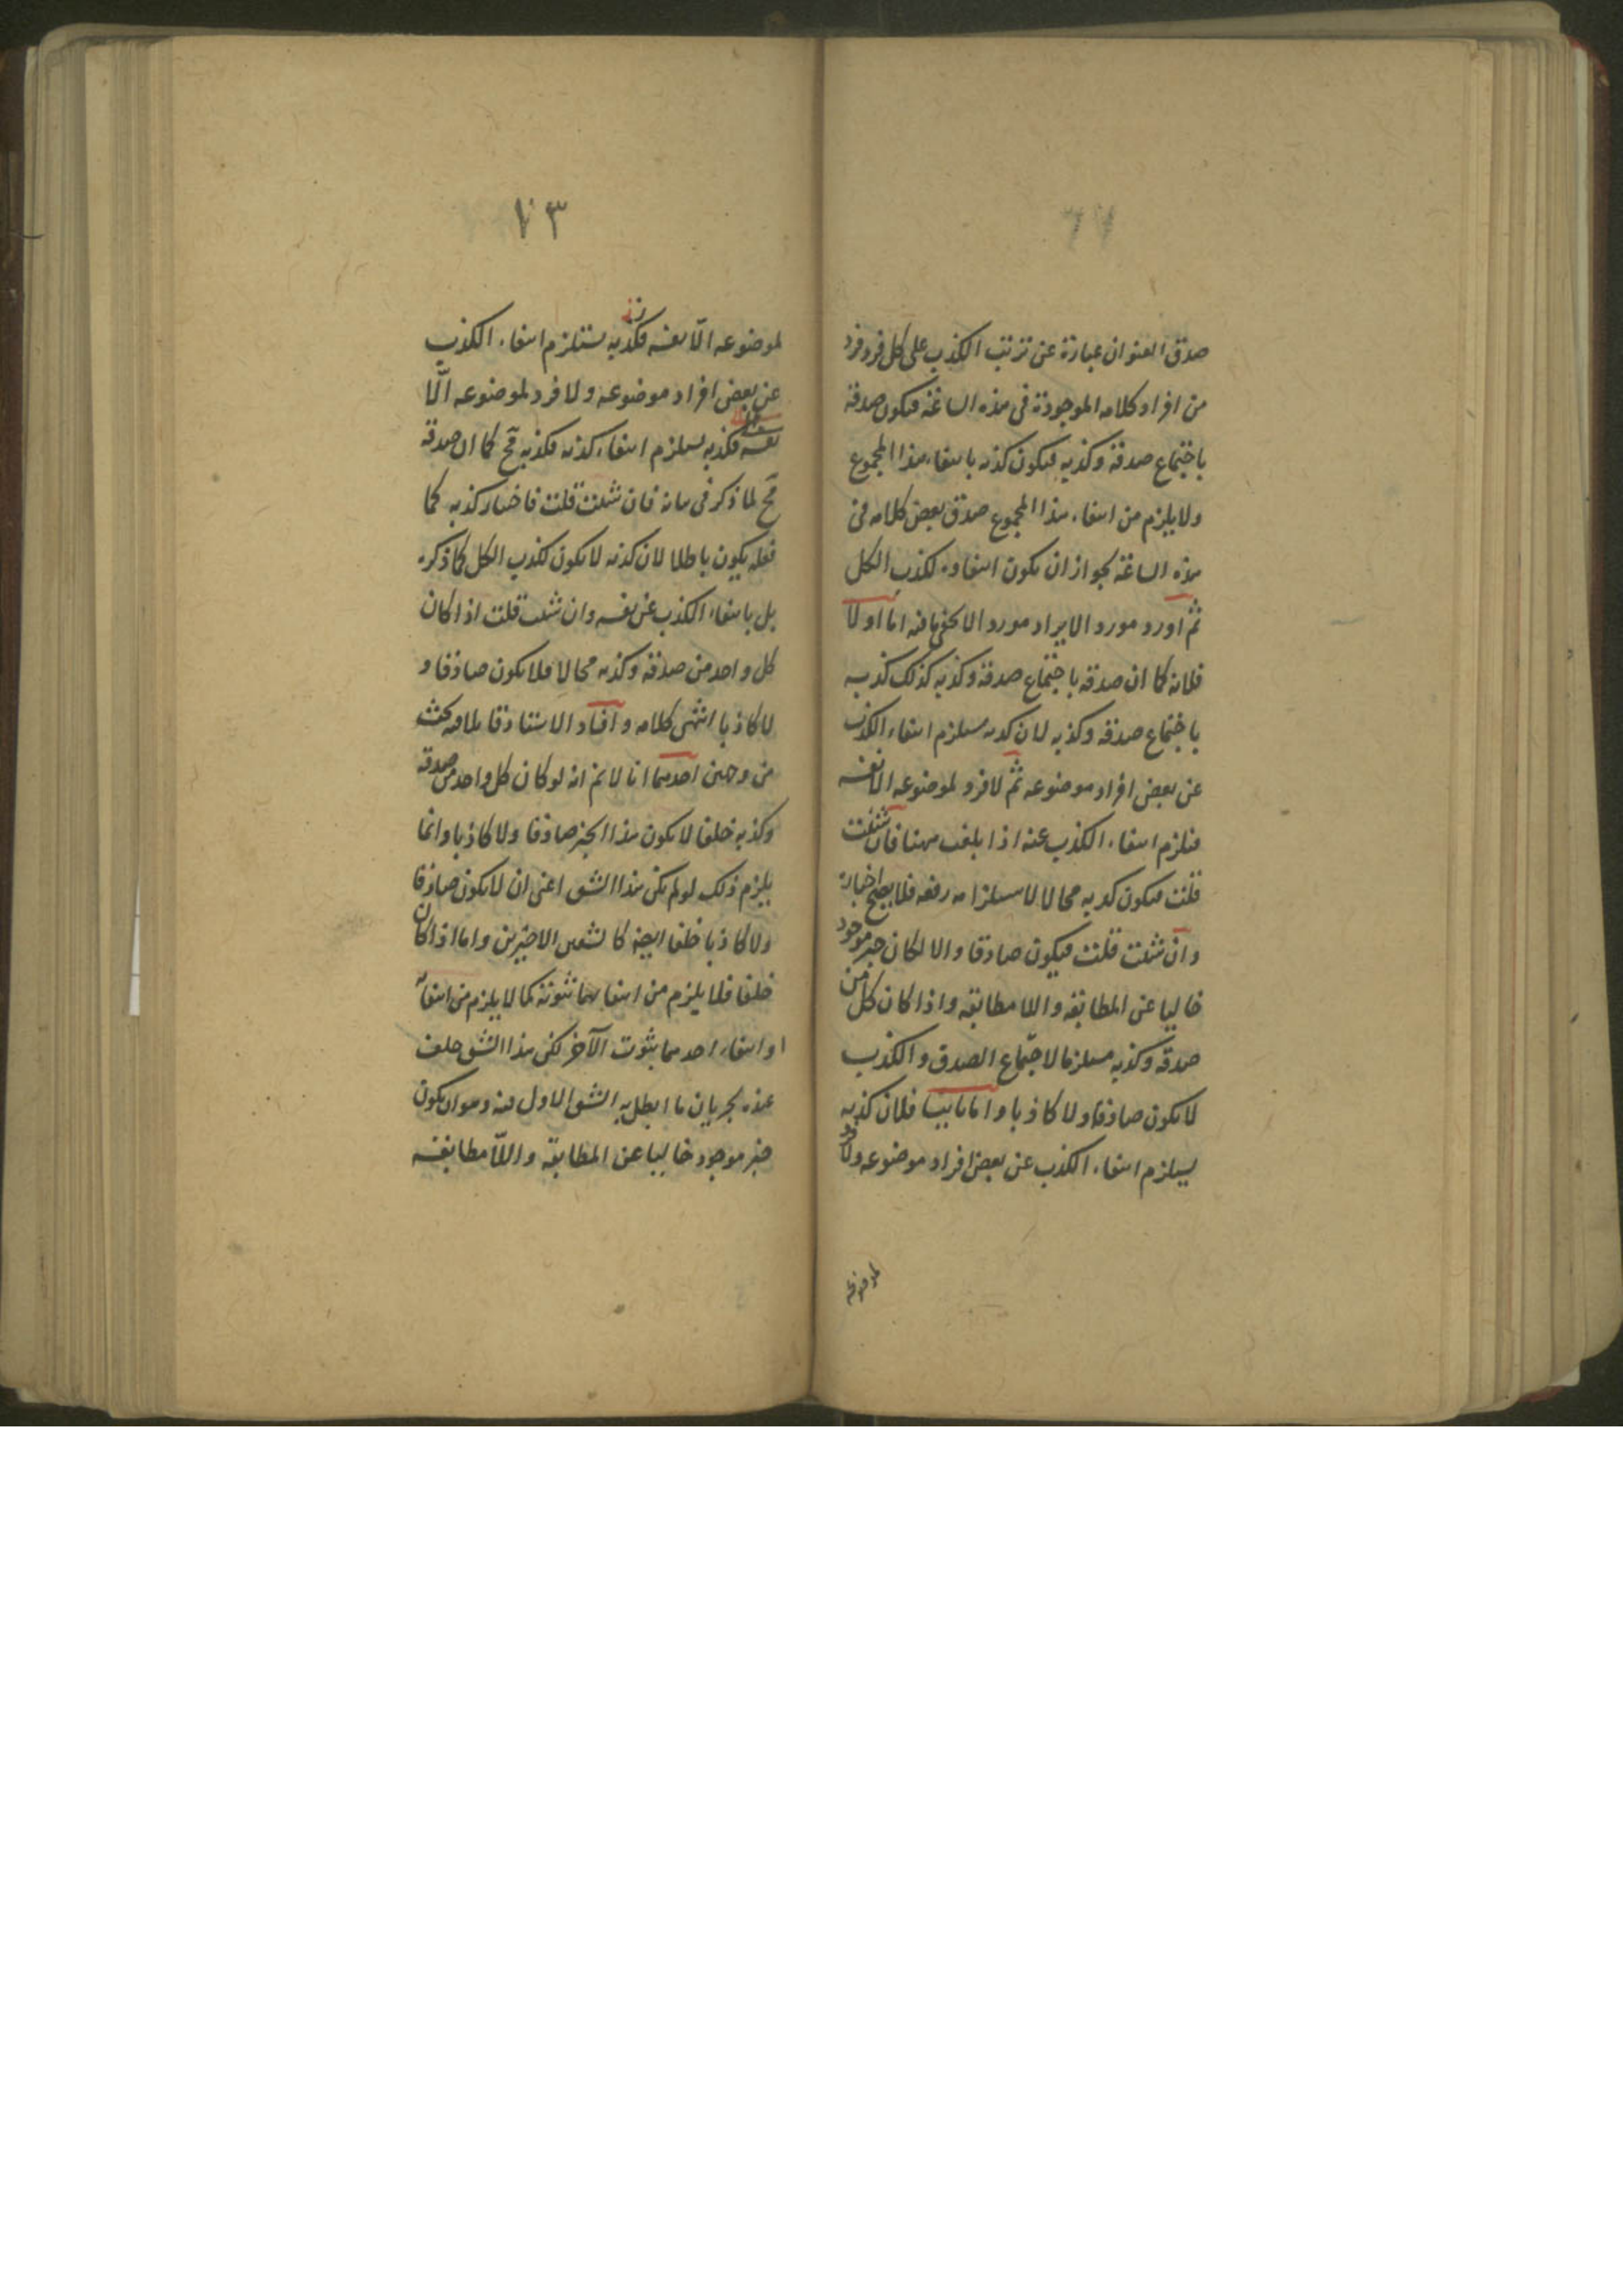 صدق العنوان عبارة عن ترتب الكذب على كل فرد فرد
من افراد كلامه الموجودة فى هذه الساعة فيكون صدقه
باجتماع صدقه وكذبه فيكون كذبه بانتفاء هذا المجموع
ولا يلزم من انتفاء هذا المجموع صدق بعض كلامه فى
هذه الساعة لجواز ان يكون انتفاؤه لكذب الكل
ثم اورد مورد الايراد مورد الا يخفى ما فيه اما اولا
فلانه كما ان صدقه باجتماع صدقه وكذبه كذلك كذبه
باجتماع صدقه وكذبه لان كذبه يستلزم انتفاء الكذب
عن بعض افراد موضوعه ثم لا فرد لموضوعه الا نفسه
فيلزم انتفاء الكذب عنه اذا بلغت ههنا فان شئت
قلت فيكون كذبه محالا لاستلزامه رفعه فلا يصح اخباره
وان شئت قلت فيكون صادقا والا لكان خبر موجود
خاليا عن المطابقة واللا مطابقة واذا كان كل من
صدقه وكذبه مستلزما لاجتماع الصدق والكذب
لا يكون صادقا ولا كاذبا واما ثانيا فلان كذبه
يستلزم انتفاء الكذب عن بعض افراد موضوعه ولا فرد
لموضوعه
٧٣
لموضوعه الّا نفسه فكذبه يستلزم انتفاء الكذب
عن بعض افراد موضوعه ولا فرد لموضوعه الّا
نفسه فكذبه يستلزم انتفاء كذبه فكذبه مح كما ان صدقه
مح لما ذكر فى بيانه فان شئت قلت فاختيار كذبه كما
فعله يكون باطلا لان كذبه لا يكون لكذب الكل كما ذكره
بل بانتفاء الكذب عن نفسه وان شئت قلت اذا كان
كل واحد من صدقه وكذبه محالا فلا يكون صادقا و
لا كاذبا انتهى كلامه وافاد الاستاد قا بلا فيه بحث
من وجهين احدهما انا لا نم انه لو كان كل واحد من صدقه
وكذبه خلفا لا يكون هذا الخبر صادقا ولا كاذبا وانما
يلزم ذلك لو لم يكن هذا الشق اعنى ان لا يكون صادقا
ولا كاذبا خلفا ايضا كالشقين الاخيرين واما اذا كان
خلفا فلا يلزم من انتفائهما ثبوته كما لا يلزم من انتفائه
او انتفاء احدهما ثبوت الآخر لكن هذا الشق خلف
عنده لجريان ما ابطل به الشق الاول فيه وهو ان يكون
خبر موجود خاليا عن المطابقة واللّا مطابقة